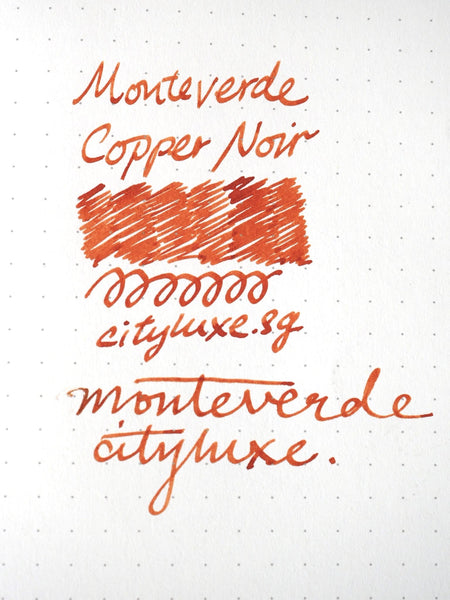 Monteverde
Copper Noir
cityluxe.sg
monteverde
cityluxe.